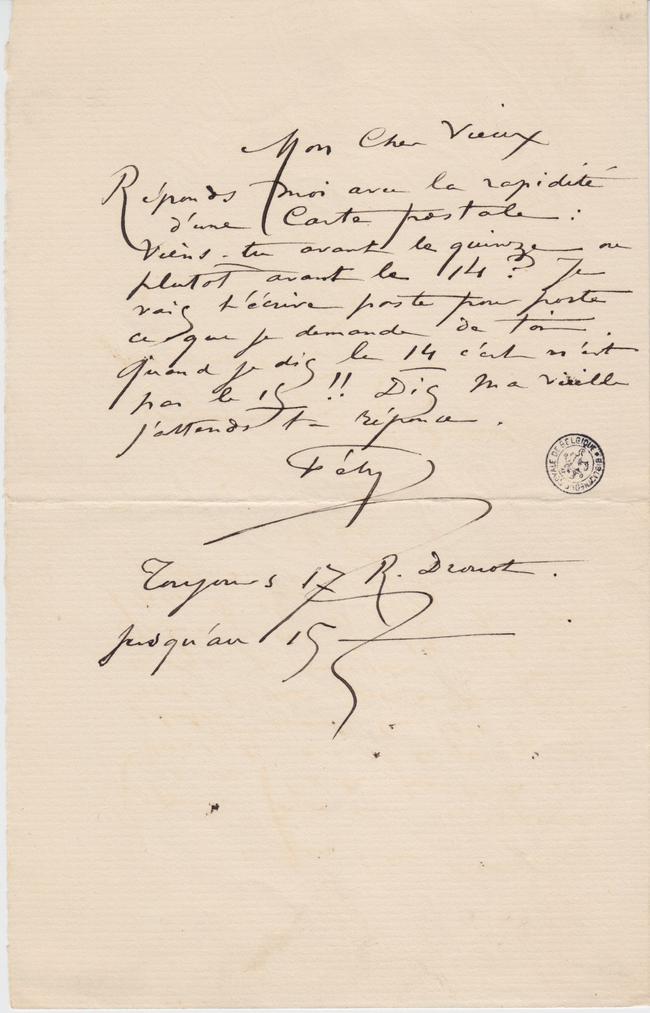 Mon Cher Vieux
Réponds moi avec la rapidité
d'une Carte postale :
Viens-tu avant le quinze ou
plutot avant le 14 ? Je
vais t'écrire poste pour poste
ce que je demande de toi.
Quand je dis le 14 c'est n'est
pas le 15 !! Dis ma vieille
j'attends ta réponse.
Fély
Toujours 17 R. Drouot.
jusqu'au 15
BIBLIOTHÈQUE ROYALE DE BELGIQUE